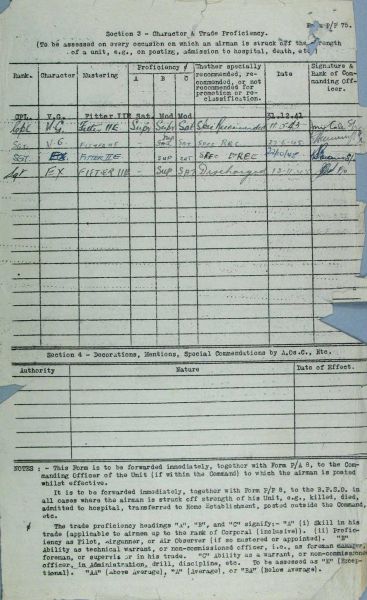 Form P/F 75.
Section 3 - Character & Trade Proficiency.
(To be assessed on every occasion on which an airman is struck off the strength
of a unit, e.g., on posting, admission to hospital, death, etc.)
Rank. Character Mustering Proficiency ø A B C Whether specially recommended, recommended, or not recommended for promotion or reclassification. Date Signature & Rank of Commanding Officer.
CPL. V.G. Fitter IIE Sat. Mod Mod 31.12.41
Cpl. V.G. Fitter IIE Supr Supr Sat Spec Recommended
Sgt. V.G. Fitter IIE Spec Rec
SGT. EX FITTER IIE SUP SAT SPEC REC
Sgt EX FITTER IIE - SUP SAT Discharged
Section 4 - Decorations, Mentions, Special Commendations by A.Os.C., Etc.
Authority Nature Date of Effect.
NOTES : - This Form is to be forwarded immediately, together with Form P/A 8, to the Com-
manding Officer of the Unit (if within the Command) to which the airman is posted
whilst effective.
It is to be forwarded immediately, together with Form P/P 8, to the B.P.S.D. in
all cases where the airman is struck off strength of his Unit, e.g., killed, died,
admitted to hospital, transferred to Home Establishment, posted outside the Command,
etc.
ø The trade proficiency headings "A", "B", and "C" signify:- "A" (i) Skill in his
trade (applicable to airmen up to the rank of Corporal (inclusive)). (ii) Profic-
iency as Pilot, Airgunner, or Air Observer (if so mustered or appointed). "B"
Ability as technical warrant, or non-commissioned officer, i.e., as foreman manager,
foreman, or supervisor in his trade. "C" Ability as a warrant, or non-commissioned
officer, in Administration, drill, discipline, etc. To be assessed as "E" (Excep-
tional). "AA" (Above Average), "A" (Average), or "BA" (Below Average).